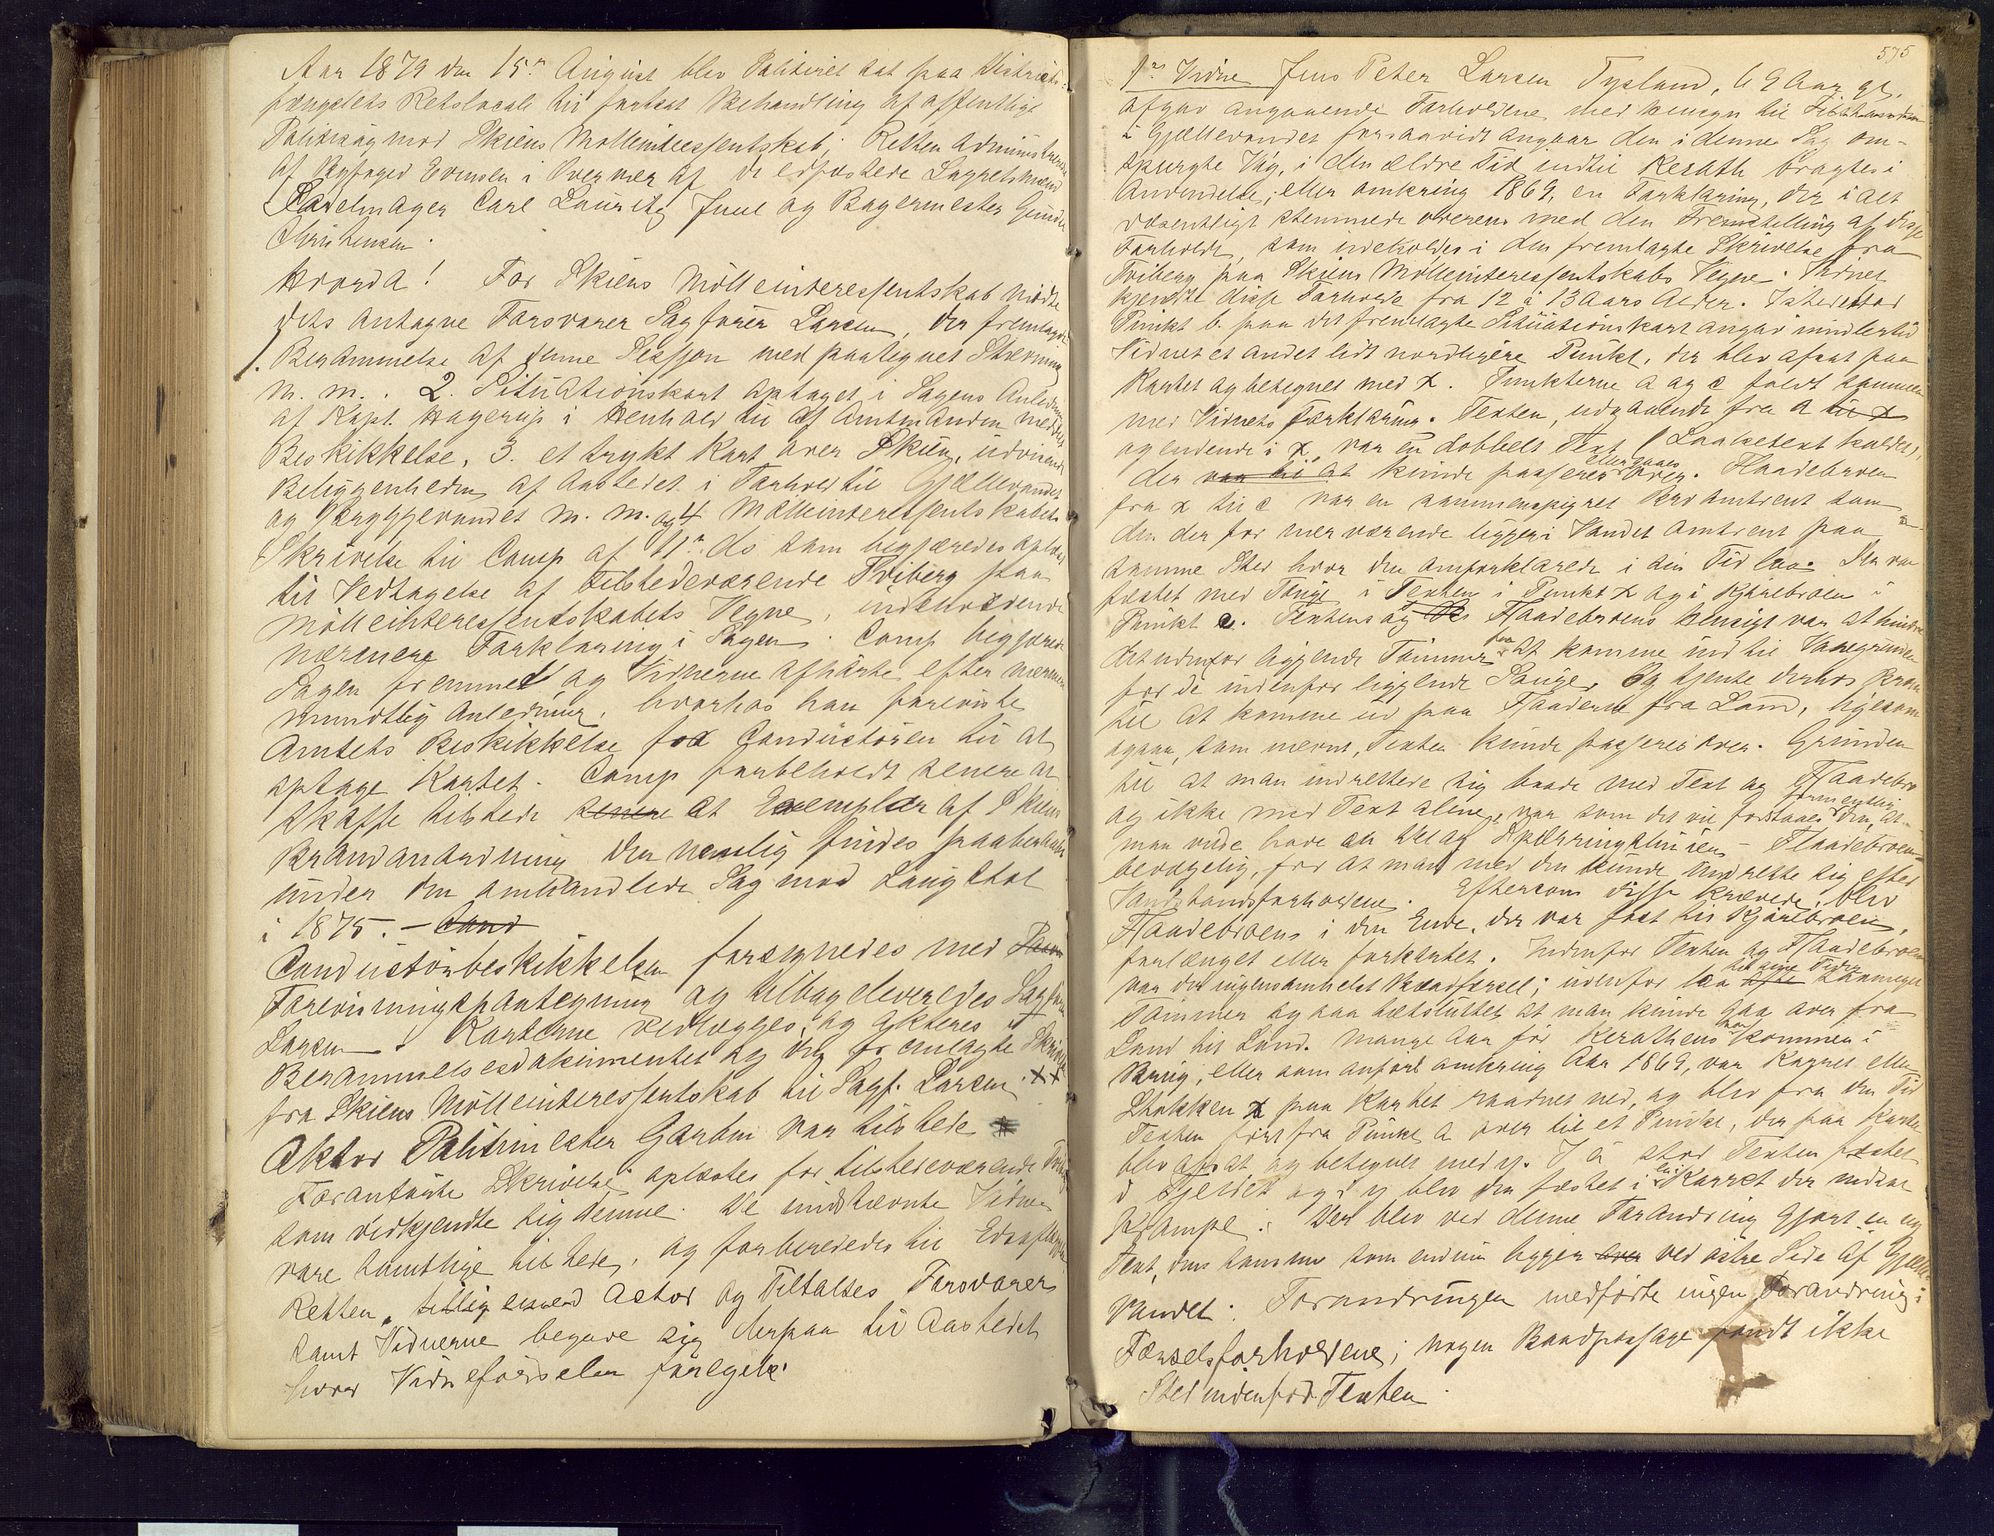 Aar 1879 den 15de August blev Politiret sat paa Distrikts-
fængslets Retslocale til fortsat Behandling af offentlig
Politisag mod Skiens Mølleinteressentskab; Retten administreret
af Byfoged Evensen i Overvær af de edfæstede Lagretsmænd
Sadelmager Carl Lauritz Juul og Bagermester Gunder
Christensen.
Hvorda! For Skiens Mølleinteressentskab mødte
dets antagne Forsvarer Sagfører Larsen, der fremlagde
1. Berammelse af denne Session med paategnet Stævning
m. m. 2. Situationskart optaget i Sagens Anledning
af Kapt. Hagerup i Henhold til af Amtmanden meddelt
Beskikkelse, 3. et trykt Kart over Skien, udvisende
Beliggenheden af Aastedet i Forhold til Gjellevandet
og Bryggevandet m. m. og 4 Mølleinteressentskabets
Skrivelse til Comp af 11te ds som begjæredes oplæst
til Vedtagelse af tilstedeværende Friberg paa
Mølleinteressentskabets Vegne, indeholdende
nærmere Forklaring i Sagen. Comp begjærede
Sagen fremmet og Vidnerne afhørte efter nærmere
mundtlig Anledning, hvorhos han foreviste
Amtets Beskikkelse for Conducteuren til at
optage Kartet. Comp forbeholdt senere at
skaffe tilstede senere et Exemplar af Skiens
Brandanordning der nemlig findes paaberaabt
under den omhandlede Sag mod Langstol
i 1875. – Cond
Conducteurbeskikkelsen forsynedes med
Forevisningspaategning og tilbageleveredes Sagf
Larsen. Karterne vedlægges, og Akteres
Berammelsesdokumentet og den fremlagte Skrivelse
fra Skiens Mølleinteressentskab til Sagf. Larsen. xx
Aktor Politimester Garben var tilstede
Foranførte Skrivelse oplæstes for tilstedeværende Friberg
som vedkjendte sig denne. De indstævnte Vidner
vare samtlige tilstede, og forberededes til Edsaflæggelse
Retten, tilligemed Actor og Tiltaltes Forsvarer
samt Vidnerne begave sig derpaa til Aastedet
hvor Vidneførselen foregik.
575
1ste Vidne Jens Peter Larsen Tysland, 69 Aar gl.
afgav angaaende Forholdene med Hensyn til
i Gjellevandet forsaavidt angaar den i denne Sag om-
spurgte Vág, i den ældre Tid indtil Kerath bragtes i
Anvendelse, eller omkring 1869, en Forklaring, der i alt
væsentligt stemmede overens med den Fremstilling af disse
Forholde, som indeholdes i den fremlagte Skrivelse fra
Friberg paa Skiens Mølleinteressentskabs Vegne. Vidnet
kjendte disse Forholde fra 12 à 13 Aars Alder. Istedetfor
Punkt b. paa det fremlagte Situationskart angav imidlertid
Vidnet et andet lidt nordligere Punkt, der blev afsat paa
Kartet og betegnet med x. Punkterne a og c faldt sammen
med Vidnets Forklaring. Texten, udgaaende fra a til x
og endende i x, var en dobbelt Text (Laaketext kaldet),
der var til at kunde passeres eller gaaes over. Flaadebroen
fra x til c var en sammenspigret Bro omtrent som
den der for nærværende ligger i Vandet omtrent paa
samme Sted hvor den omforklarede i sin Tid laa. Den var
fæstet med Tauge i Texten i Punkt x og i Kjørebroen i
Punkt c. Textens og Flaadebroens Hensigt var at hindre
det udenfor liggende Tømmer fra at komme ind til Vanegrunden
for de indenfor liggende Sauge, og tjente derhos Broen
til at komme ud paa Flaaderne fra Land, ligesom
ogsaa, som nævnt, Texten kunde passeres over. Grunden
til at man indrettede sig baade med Text og Flaadebro
og ikke med Text alene, var som det vil forstaaes formentlig den, at
man vilde have en Del af Spærringslinien – Flaadebroen –
bevægelig, for at man med den kunde indrette sig efter
Vandstandsforholdene. Eftersom disse krævede, blev
Flaadebroens i den Ende, der var fast til Kjørebroen,
forlænget eller forkortet. Indenfor Texten og Flaadebroen
var der ingensomhelst Baadførsel; udenfor laa ofte til sine Tider saameget
Tømmer og saa tætsluttet at man kunde gaa over fra
Land til Land. Mange Aar før Kerathens kommen i
Brug, eller som anført omkring Aar 1869, var Karret eller
Stokken x paa Kartet raadnet ned, og blev fra den Tid
Texten ført fra Punkt a over til et Punkt, der paa Kartet
blev afsat og betegnet med y. I a stod Texten fæstet
i Fjeldet og i y blev den fæstet i Karret der nedenf
Krampe. Der blev ved denne Forandring gjort en ny
Text, den samme som endnu ligger over ved østre Side af Gjelle-
Vandet. Forandringen medførte ingen Forandring i
Færselsforholdene; nogen Baadpassage fandt ikke
Sted indenfor Texten.